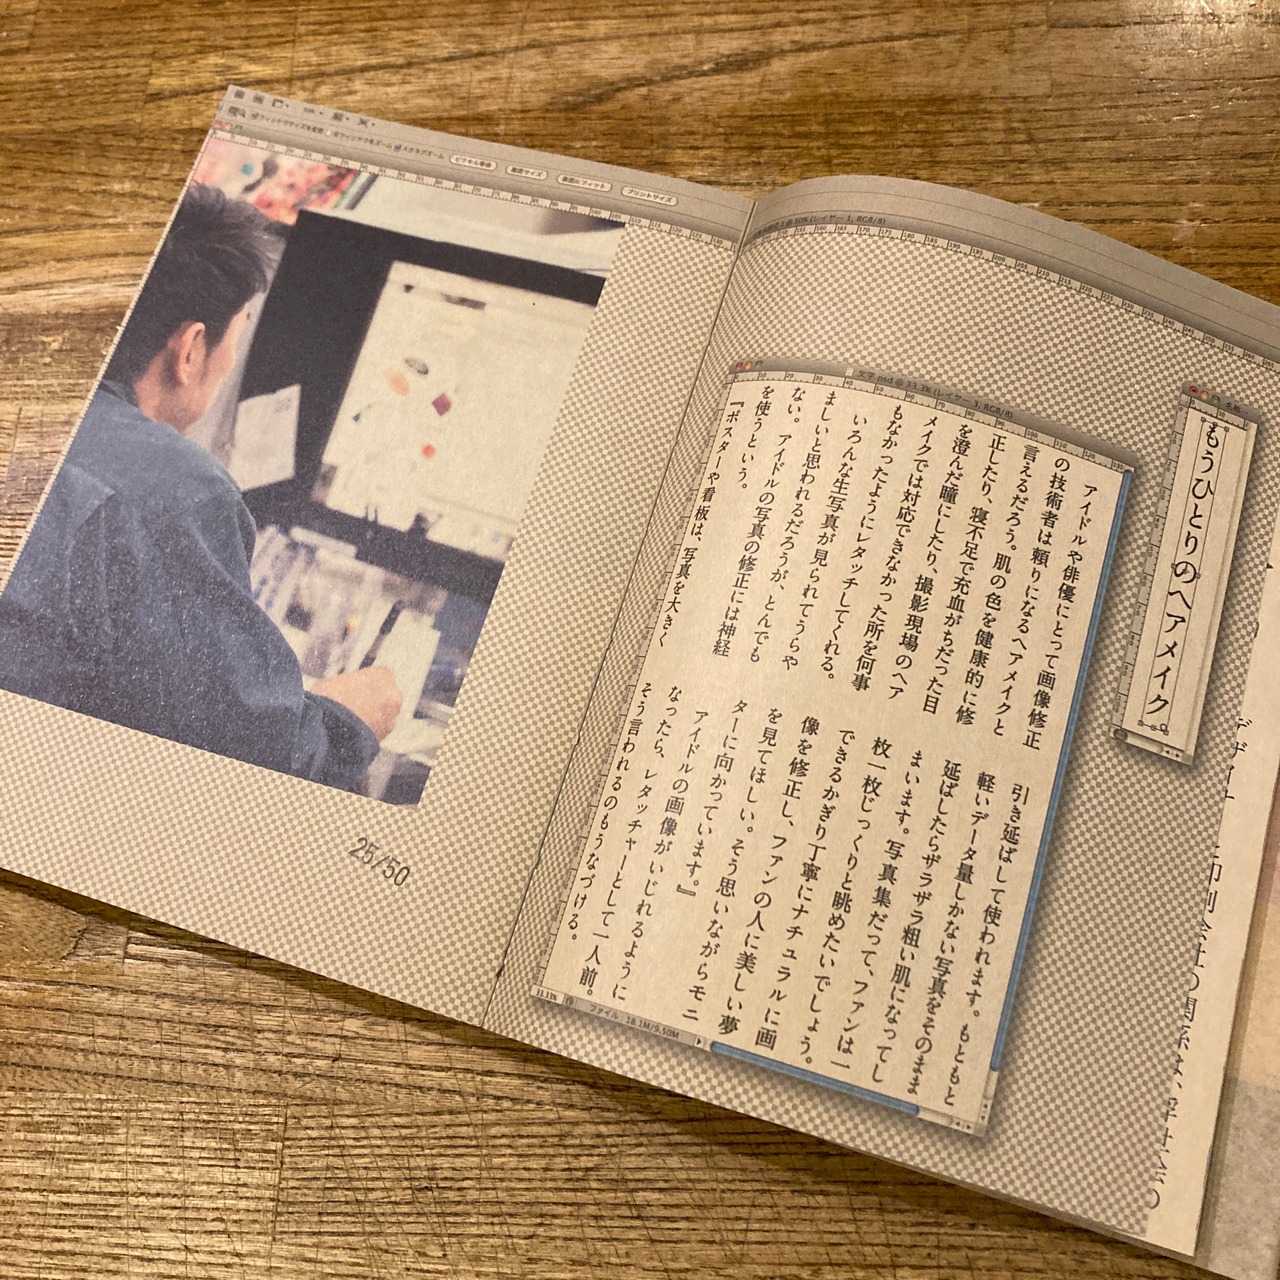 ウィンドウサイズを変更 全ウィンドウをズーム スクラブズーム ピクセル等倍 画面サイズ 画面にフィット プリントサイズ
@ 50% (レイヤー 1, RGB/8)
もうひとりのヘアメイク
文字.psd @ 33.3% (レイヤー 3, RGB/8)
アイドルや俳優にとって画像修正
の技術者は頼りになるヘアメイクと
言えるだろう。肌の色を健康的に修
正したり、寝不足で充血がちだった目
を澄んだ瞳にしたり、撮影現場のヘア
メイクでは対応できなかった所を何事
もなかったようにレタッチしてくれる。
いろんな生写真が見られてうらや
ましいと思われるだろうが、とんでも
ない。アイドルの写真の修正には神経
を使うという。
『ポスターや看板は、写真を大きく
引き延ばして使われます。もともと
軽いデータ量しかない写真をそのまま
延ばしたらザラザラ粗い肌になってし
まいます。写真集だって、ファンは一
枚一枚じっくりと眺めたいでしょう。
できるかぎり丁寧にナチュラルに画
像を修正し、ファンの人に美しい夢
を見てほしい。そう思いながらモニ
ターに向かっています。』
アイドルの画像がいじれるように
なったら、レタッチャーとして一人前。
そう言われるのもうなづける。
33.33%
ファイル : 18.1M/9.50M
25/50